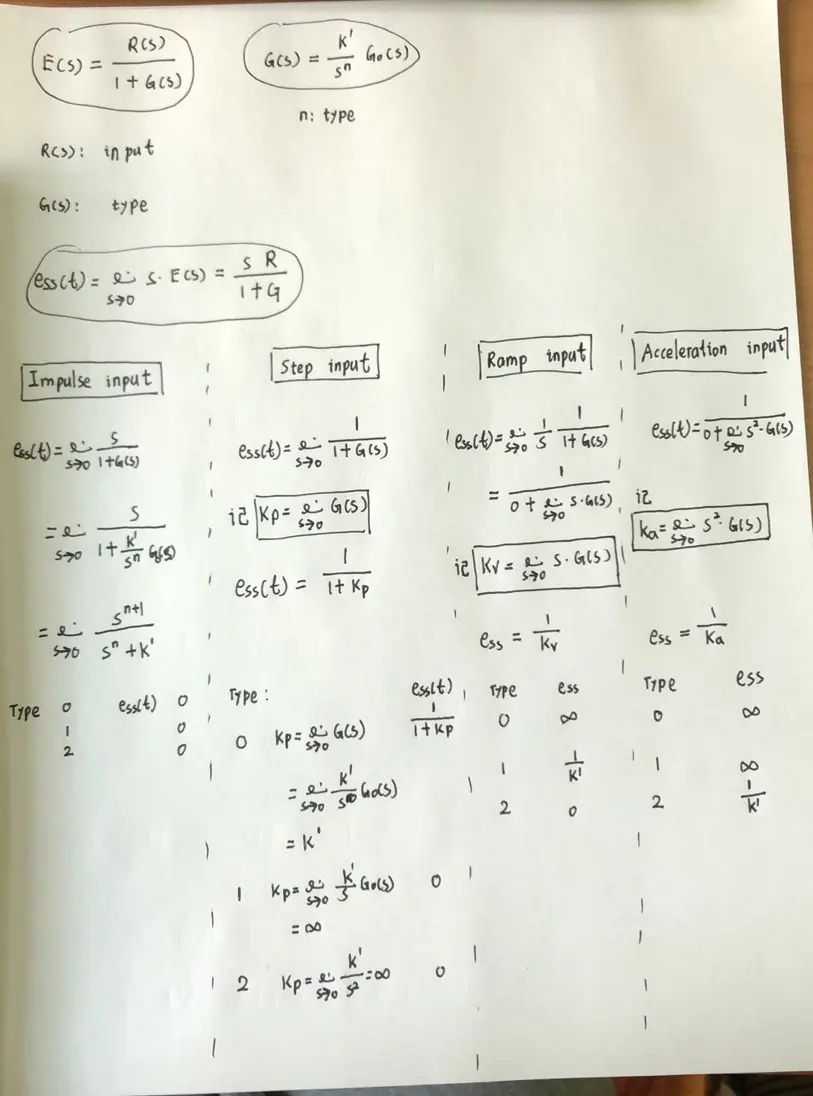 E(s) = R(s) / (1 + G(s))
G(s) = K' / sⁿ G₀(s)
n: type
R(s): input
G(s): type
ess(t) = lim s→0 s · E(s) = s R / (1 + G)
Impulse input
ess(t) = lim s→0 s / (1 + G(s))
= lim s→0 s / (1 + K'/sⁿ G(s))
= lim s→0 sⁿ⁺¹ / (sⁿ + K')
Type 0 ess(t) 0
1 0
2 0
Step input
ess(t) = lim s→0 1 / (1 + G(s))
记 Kp = lim s→0 G(s)
ess(t) = 1 / (1 + Kp)
Type: ess(t)
0 Kp = lim s→0 G(s) 1 / (1 + Kp)
= lim s→0 K' / s⁰ G₀(s)
= K'
1 Kp = lim s→0 K' / s G₀(s) 0
= ∞
2 Kp = lim s→0 K' / s² = ∞ 0
Ramp input
ess(t) = lim s→0 1/s 1 / (1 + G(s))
= 1 / (0 + lim s→0 s · G(s))
记 Kv = lim s→0 s · G(s)
ess = 1 / Kv
Type ess
0 ∞
1 1 / K'
2 0
Acceleration input
ess(t) = 1 / (0 + lim s→0 s² · G(s))
记
Ka = lim s→0 s² · G(s)
ess = 1 / Ka
Type ess
0 ∞
1 ∞
2 1 / K'